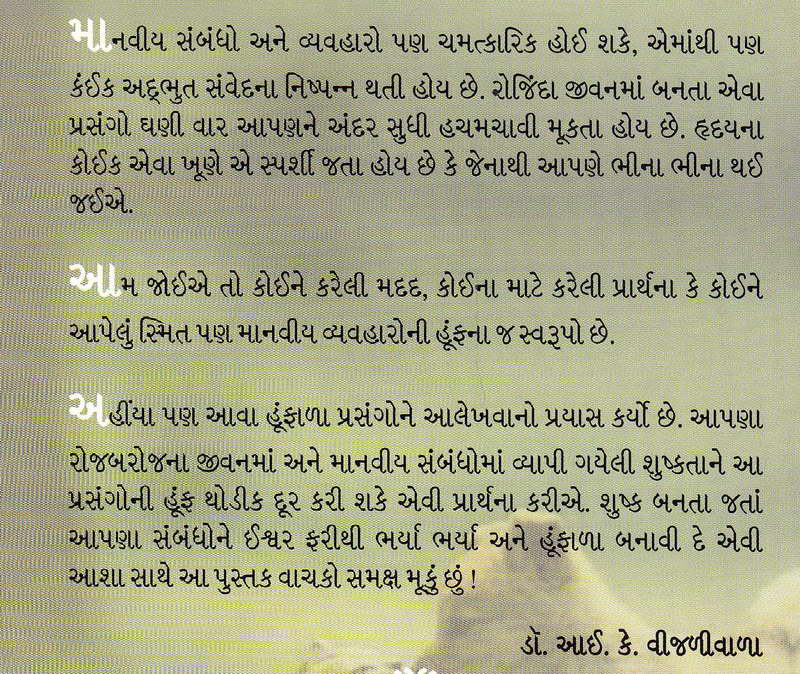 માનવીય સંબંધો અને વ્યવહારો પણ ચમત્કારિક હોઈ શકે, એમાંથી પણ
કંઈક અદ્ભુત સંવેદના નિષ્પન્ન થતી હોય છે. રોજિંદા જીવનમાં બનતા એવા
પ્રસંગો ઘણી વાર આપણને અંદર સુધી હચમચાવી મૂકતા હોય છે. હૃદયના
કોઈક એવા ખૂણે એ સ્પર્શી જતા હોય છે કે જેનાથી આપણે ભીના ભીના થઈ
જઈએ.
આમ જોઈએ તો કોઈને કરેલી મદદ, કોઈના માટે કરેલી પ્રાર્થના કે કોઈને
આપેલું સ્મિત પણ માનવીય વ્યવહારોની હૂંફના જ સ્વરૂપો છે.
અહીંયા પણ આવા હૂંફાળા પ્રસંગોને આલેખવાનો પ્રયાસ કર્યો છે. આપણા
રોજબરોજના જીવનમાં અને માનવીય સંબંધોમાં વ્યાપી ગયેલી શુષ્કતાને આ
પ્રસંગોની હૂંફ થોડીક દૂર કરી શકે એવી પ્રાર્થના કરીએ. શુષ્ક બનતા જતાં
આપણા સંબંધોને ઈશ્વર ફરીથી ભર્યા ભર્યા અને હૂંફાળા બનાવી દે એવી
આશા સાથે આ પુસ્તક વાચકો સમક્ષ મૂકું છું !
ડૉ. આઈ. કે. વીજળીવાળા